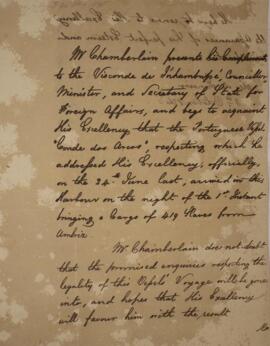 Mr Chamberlain presents his Compliments
to the Visconde de Inhambupé, Councillor
Minister, and Secretary of State for
Foreign Affairs, and begs to acquaint
His Excellency that the Portuguese Vessel
"Conde dos Arcos", respecting which he
addressed His Excellency, officially,
on the 24th June last, arrived in this
Harbour on the night of the 1st Instant
bringing a Cargo of 419 Slaves from
Ambriz
Mr Chamberlain does not doubt
that the promised enquiries respecting the
legality of this Vessel's Voyage will be gone
into, and hopes that His Excellency
will favour him with the result